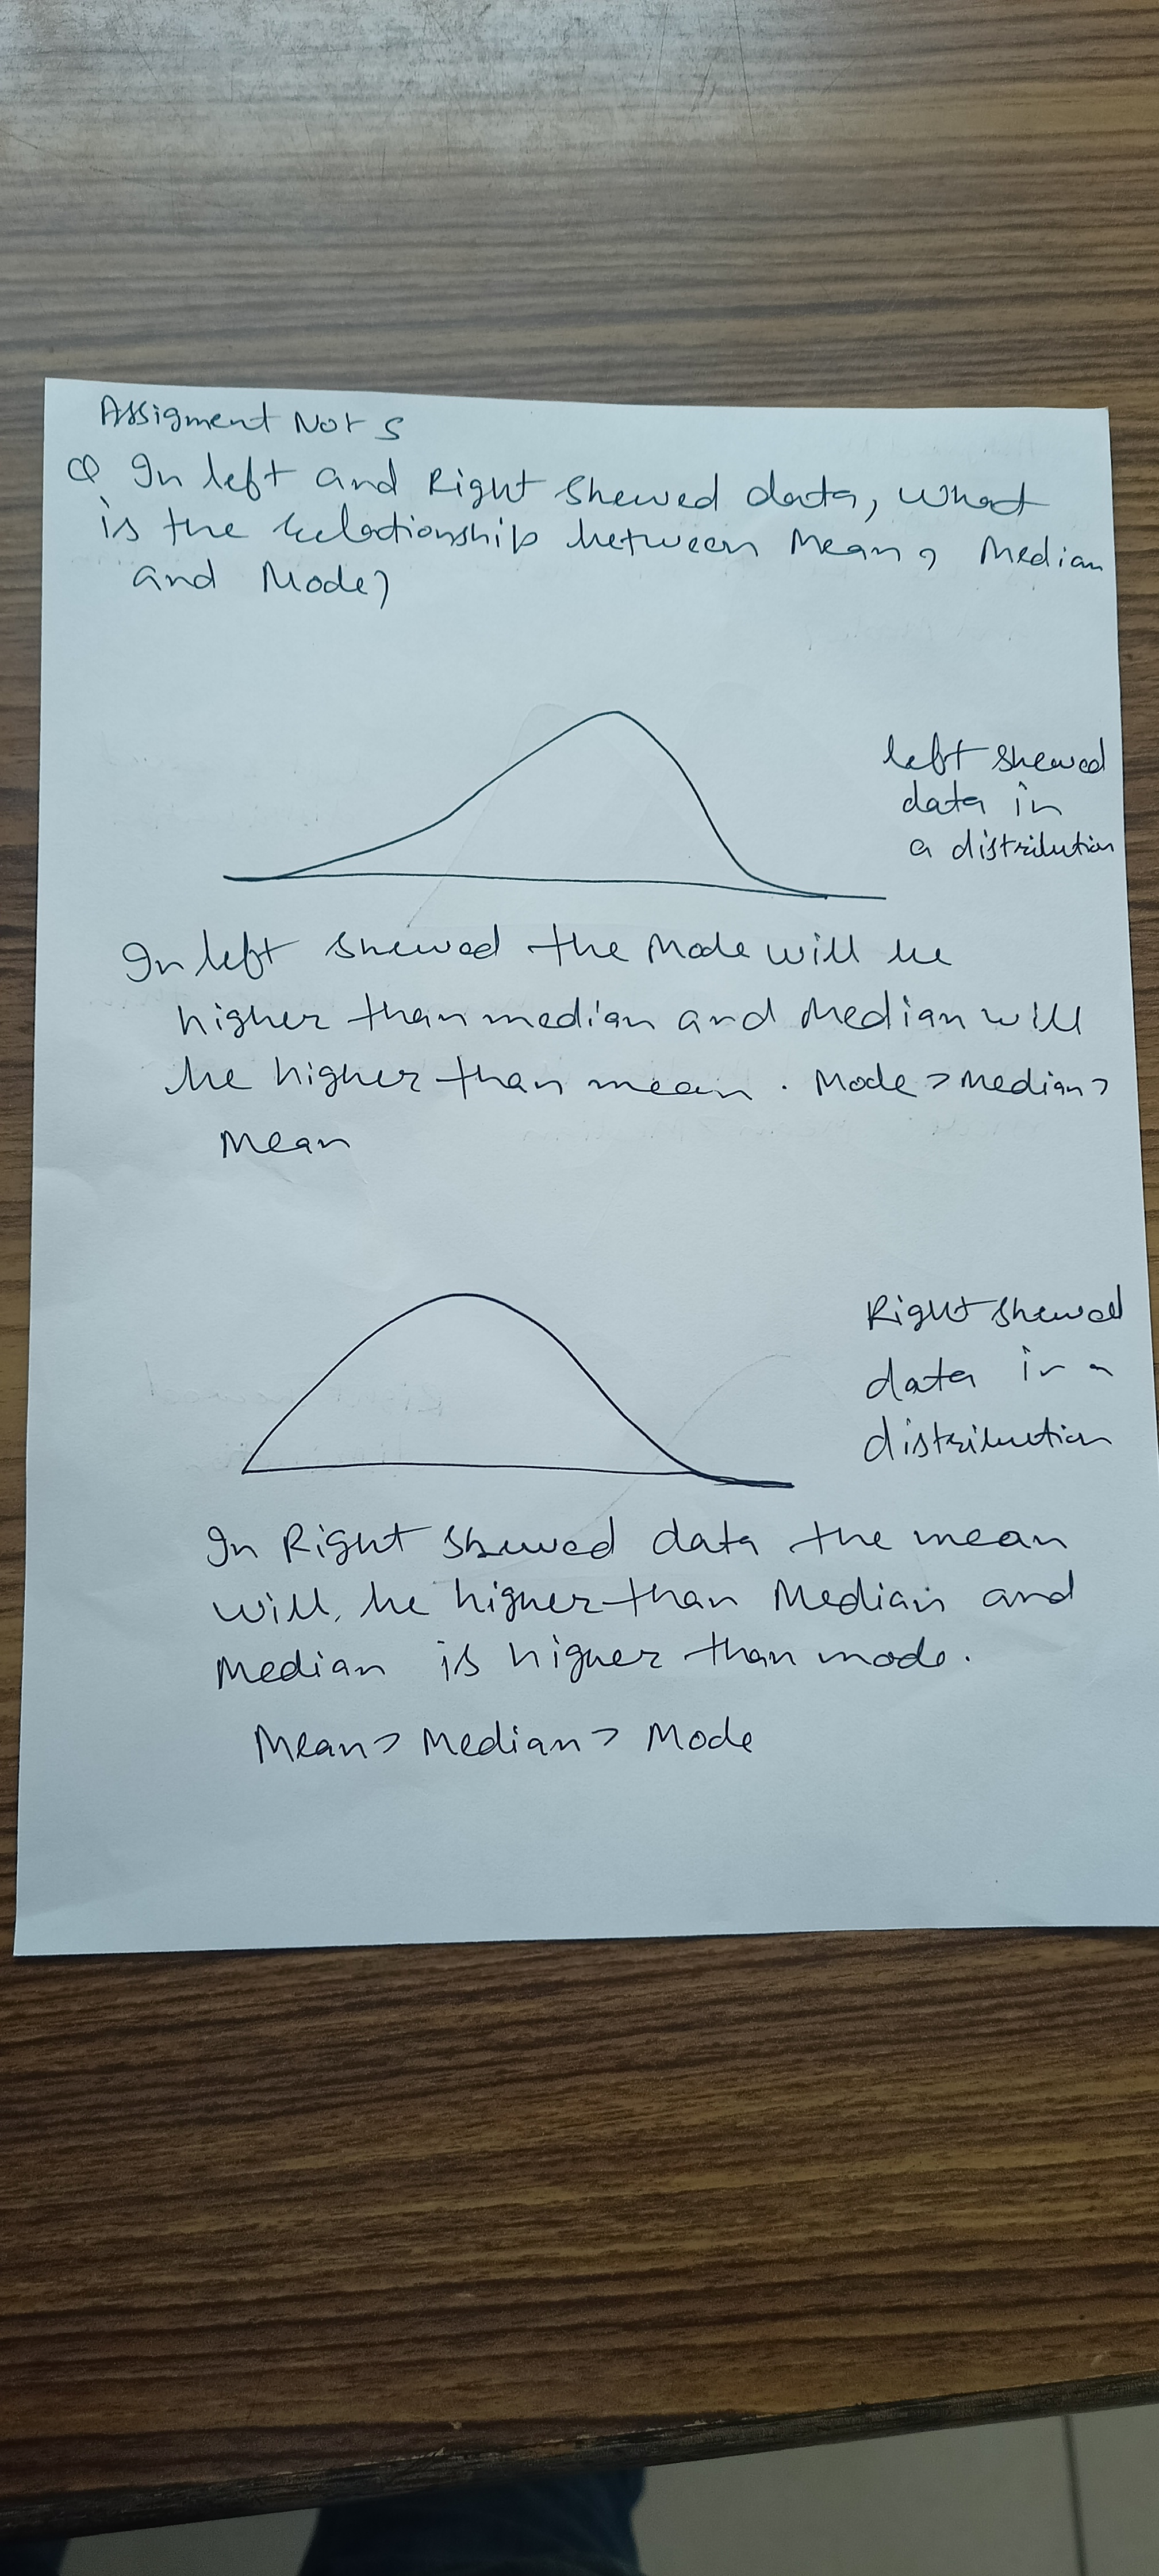 Assigment Not 5
Q In left and Right Skewed data, what
is the relationship between Mean, Median
and Mode?
left skewed
data in
a distribution
In left skewed the Mode will be
higher than median and Median will
be higher than mean. Mode > Median >
Mean
Right skewed
data in a
distribution
In Right skewed data the mean
will be higher than Median and
Median is higher than mode.
Mean > Median > Mode